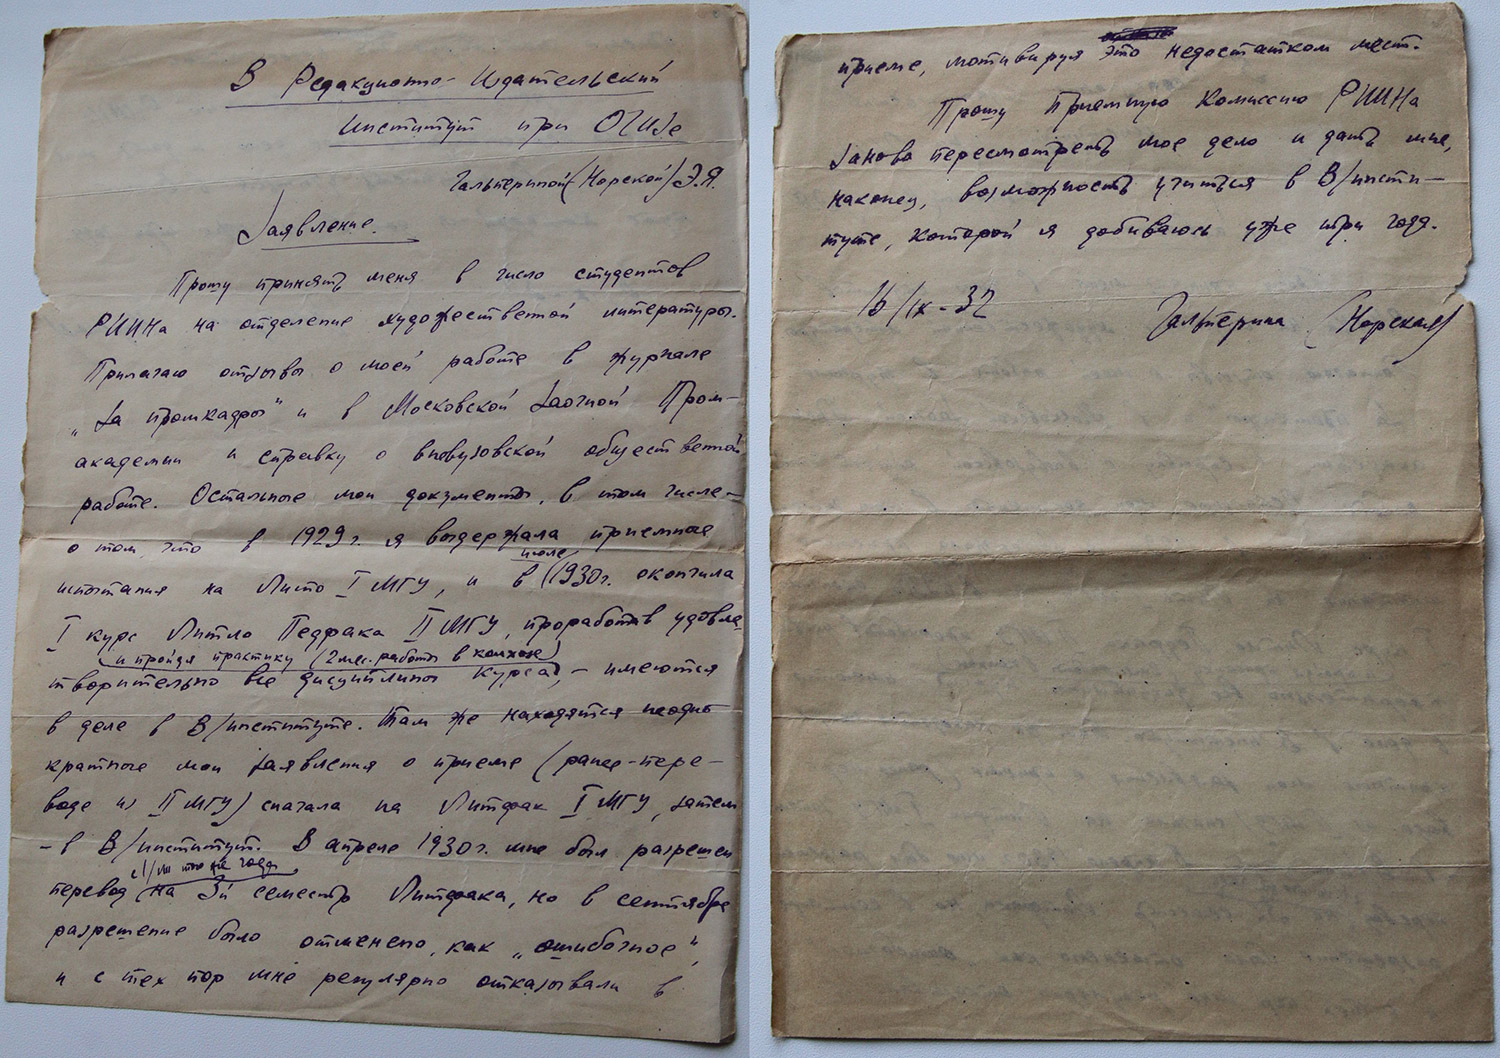 В Редакционно-Издательский
институт при ОГИЗе
Гальпериной (Норской) Э.Я.
Заявление.
Прошу принять меня в число студентов
РИИНа на отделение художественной литературы.
Прилагаю отзывы о моей работе в журнале
„За промкадры" и в Московской Заочной Пром-
академии и справку о вневузовской общественной
работе. Остальные мои документы, в том числе –
о том, что в 1929 г. я выдержала приемные
испытания на Лито I МГУ, и в июле 1930 г. окончила
I курс Литло Педфака II МГУ, проработав удовле-
и пройдя практику (2 мес. работы в колхозе)
творительно все дисциплины курса, – имеются
в деле в В/институте. Там же находятся неодно
кратные мои заявления о приеме (ранее – пере-
воде из II МГУ) сначала на Литфак I МГУ, затем
– в В/институт. В апреле 1930 г. мне был разрешен
перевод с 1/IX того же года на 3й семестр Литфака, но в сентябре
разрешение было отменено, как „ошибочное",
и с тех пор мне регулярно отказывали в
приеме, мотивируя это недостатком мест.
Прошу Приемную Комиссию РИИНа
заново пересмотреть мое дело и дать мне,
наконец, возможность учиться в В/инсти-
туте, которой я добиваюсь уже три года.
16/IX - 32 Гальперина (Норская)